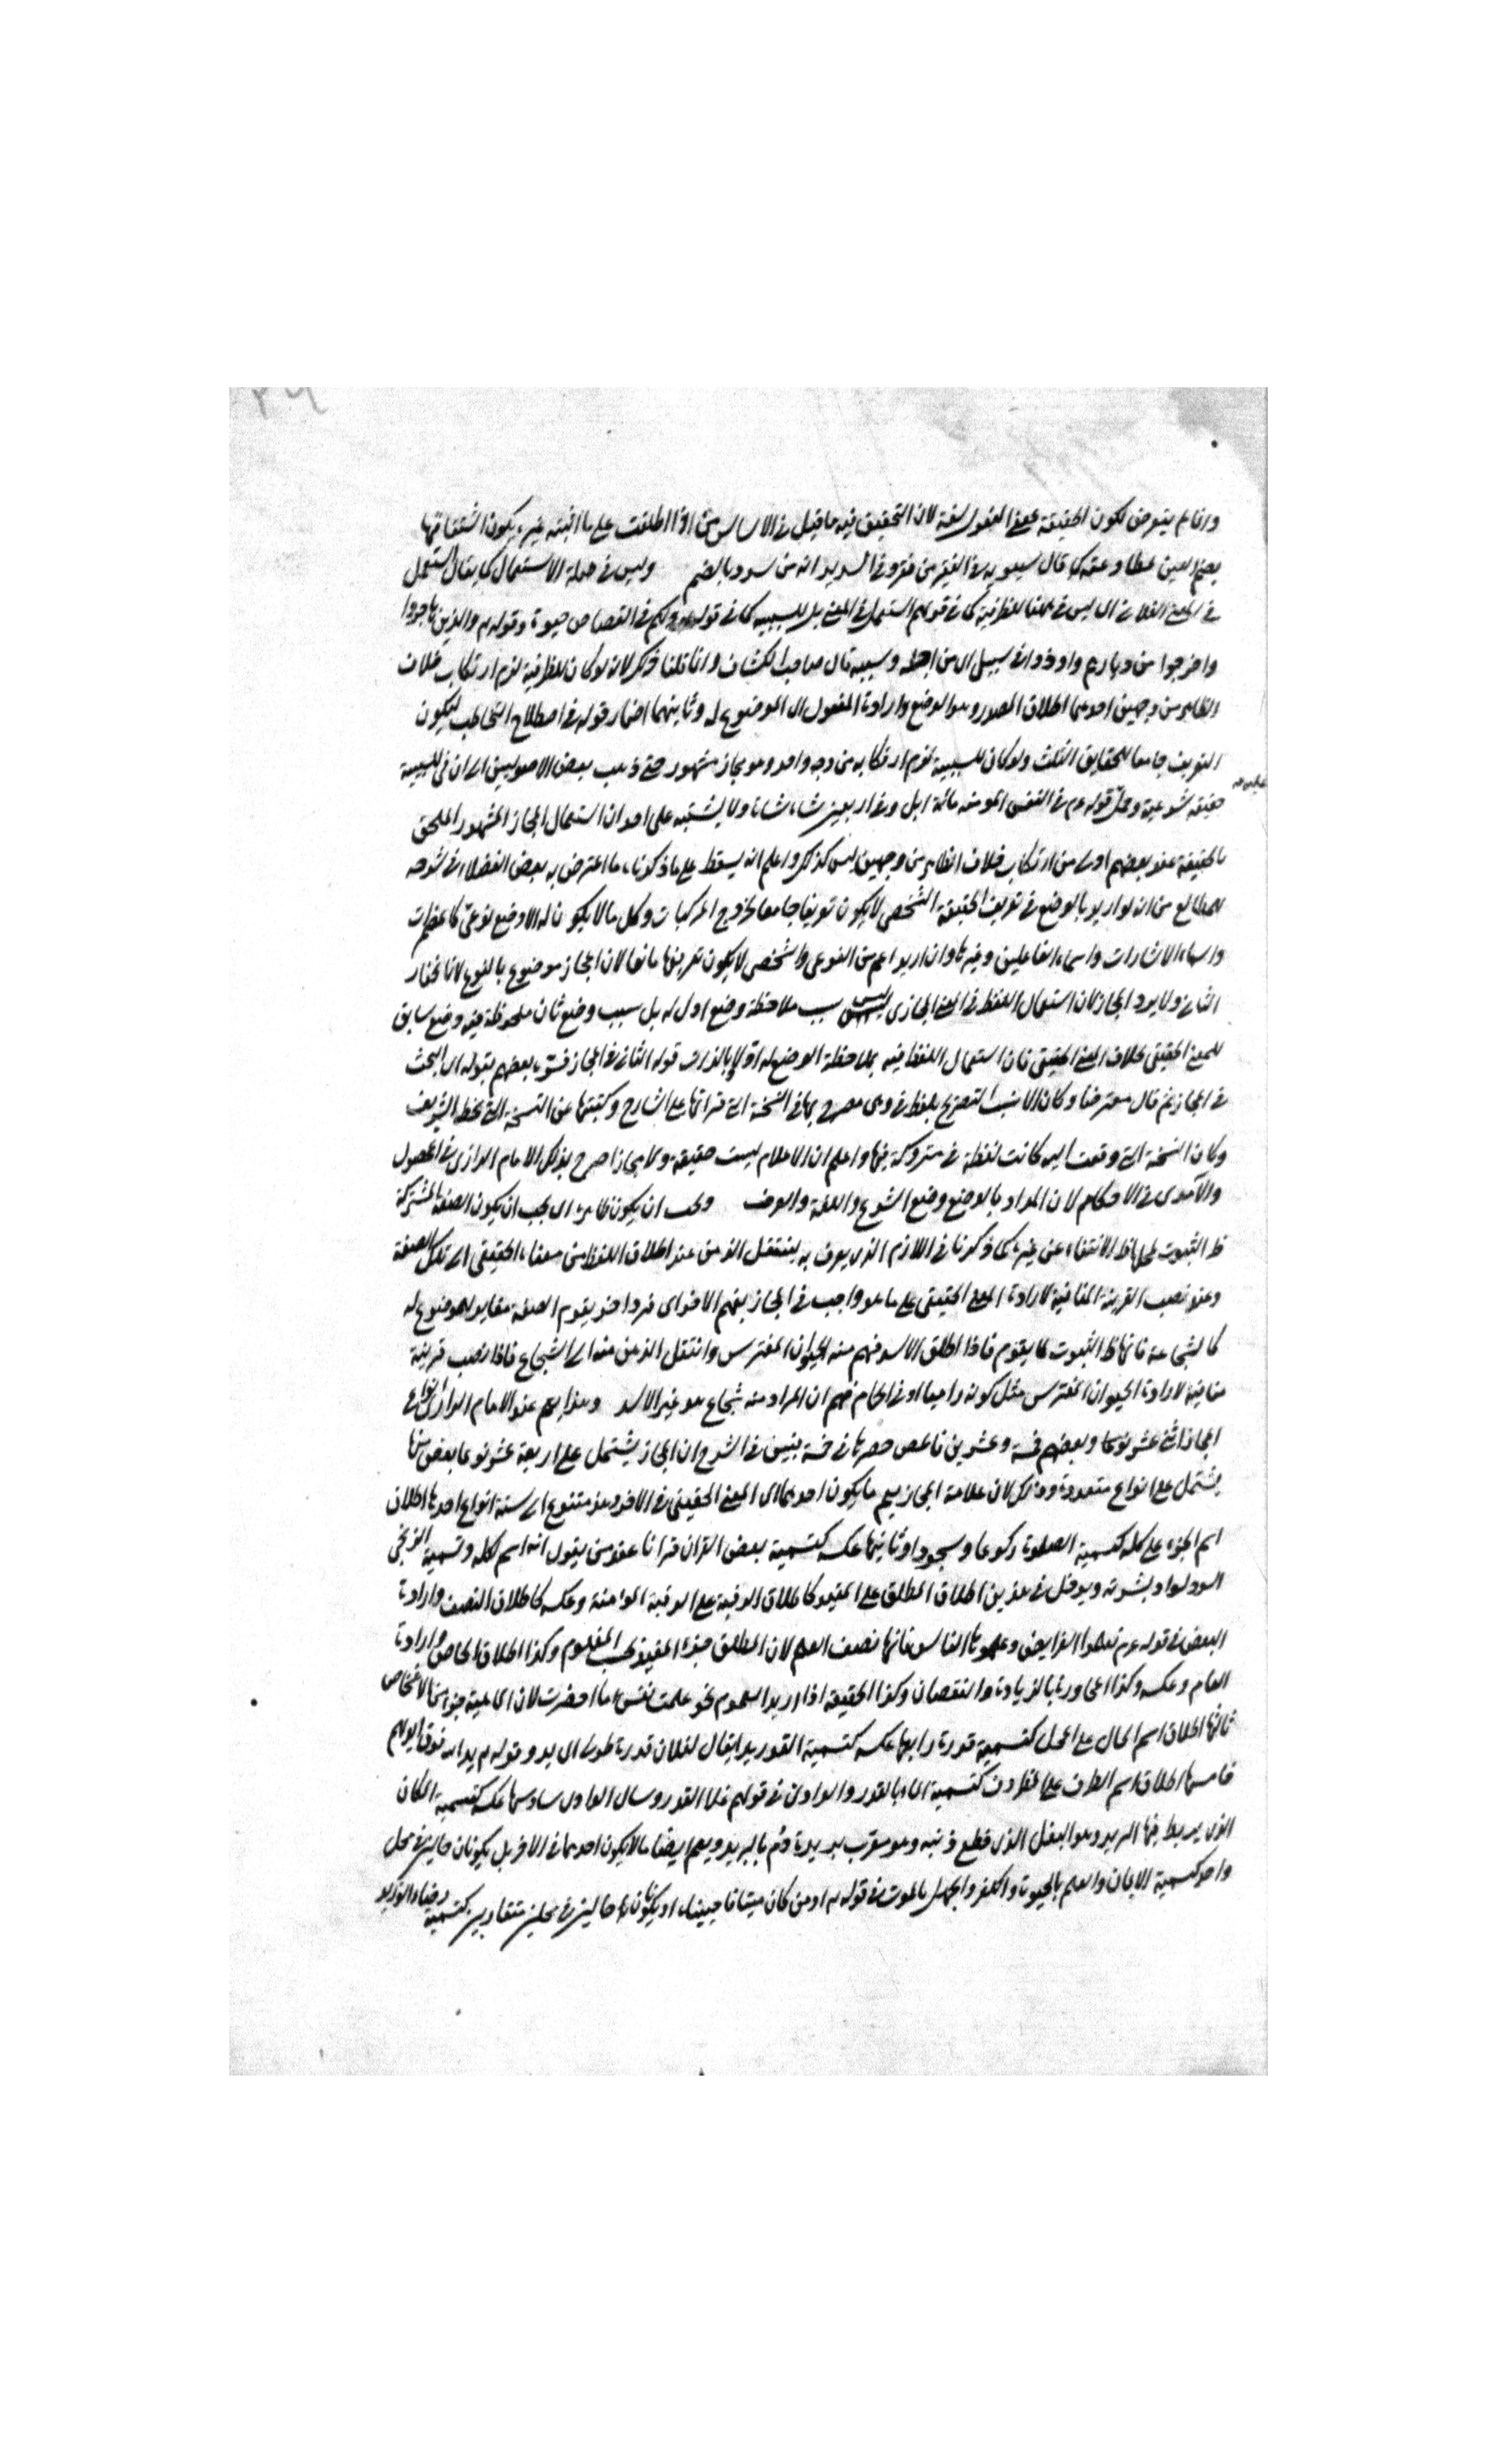 وانما لم يتعرض لكون الحقيقة بمعنى المفعول لغة لان التحقيق فيه ما قيل في الاساس من اذا اطلعت على ما اثبته غيره يكون اشتقاقها
بضم العين مطاوعة كما قال سيبويه في الفقير من فقر وفي الشديد انه من شدد بالضم وليس في صلة الاستعمال كما يقال استعمل
في المعنى الفلاني اي ليس في ههنا للظرفية كما في قولهم استعمل في المعنى بل للسببية كما في قوله ولكم في القصاص حيوة وقوله والذين هاجروا
واخرجوا من ديارهم واوذوا في سبيلي اي من اجله وسببه قال صاحب الكشاف وانما قلنا ذلك لان لو كان للظرفية لزم ارتكاب خلاف
الظاهر من وجهين احدهما اطلاق المصدر وهو الوضع وارادة المفعول اي الموضوع له وثانيهما اضمار قوله في اصطلاح التخاطب ليكون
التعريف جامعا للحقايق الثلث ولو كان للسببية لزم ارتكابه من وجه واحد وهو مجاز مشهور حتى ذهب بعض الاصوليين الى ان في للسببية
حقيقة شرعية وعليه قوله عم في النفس المومنة مائة ابل وفي اربعين شاة شاة ولا يشتبه على احد ان استعمال المجاز المشهور الملحق
بالحقيقة عند بعضهم اولى من ارتكاب خلاف الظاهر من وجهين ليس كذلك واعلم انه يسقط على ما ذكرنا ما اعترض به بعض الفضلاء في شرحه
للمطالع من انه لو اريد بالوضع في تعريف الحقيقة الشخصي لا يكون تعريفا جامعا لخروج المركبات وكل ما لا يكون له الا وضع نوعي كالمضمرات
واسماء الاشارات واسماء الفاعلين وغيرها وان اريد اعم من النوعي والشخصي لا يكون تعريفها مانعا لان المجاز موضوع بالنوع لانا نختار
الثاني ولا يرد المجاز لان استعمال اللفظ في المعنى المجازي ليس بسبب ملاحظة وضع اول له بل بسبب وضع ثان ملحوظة فيه وضع سابق
للمعنى الحقيقي بخلاف المعنى الحقيقي فان استعمال اللفظ فيه بملاحظة الوضع له اولا وبالذات قوله الثاني في المجاز فسره بعضهم بقوله اي البحث
في المجاز ثم قال معترضا وكان الانسب التصريح بلفظ في وهي مصرح بها في النسخة التي قراتها على الشارح وكتبتها عن النسخة التي بخطه الشريف
وكان النسخة التي وقعت اليه كانت لفظة في متروكة فيها واعلم ان الاعلام ليست حقيقة ولا مجازا صرح بذلك الامام الرازي في المحصول
والآمدي في الاحكام لان المراد بالوضع وضع الشرع واللغة والعرف ويجب ان يكون ظاهرة اي يجب ان يكون الصفة المشتركة
ظ الثبوت لمحلها ظ الانتفاء عن غيره كما ذكرنا في اللازم الذي يعرف به ينتقل الذهن عند اطلاق اللفظ من معناه الحقيقي الى تلك الصفة
وعند نصب القرينة المنافية لارادة المعنى الحقيقي على ما هو واجب في المجاز يفهم الاخر اي فرد اخر يقوم الصفة مغاير للموضوع له
كالشجاعة فانها ظ الثبوت لما يقوم فاذا اطلق الاسد فهم منه الحيوان المفترس وانتقل الذهن منه الى الشجاع فاذا نصب قرينة
منافية لارادة الحيوان المفترس مثل كونه راميا او في الحمام فهم ان المراد منه شجاع هو غير الاسد وهذا يعم عند الامام الرازي انواع
المجاز اثني عشر نوعا وبعضهم خمسة وعشرين فالمص حصرها في خمسة بتبيين في الشرح ان المجاز يشتمل على اربعة عشر نوعا بعض منها
يشتمل على انواع متعددة وذلك لان علامة المجاز يعم ما يكون احدهما اي المعنى الحقيقي في الاخر وهذ متنوع الى ستة انواع احدها اطلاق
اسم الجزء على كله كتسمية الصلوة ركوعا وسجودا وثانيها عكسه كتسمية بعض القران قرانا عند من يقول انه اسم لكله وتسمية الزنجي
اسود لسواد بشرته ويدخل في هذين اطلاق المطلق على المقيد كاطلاق الرقبة على الرقبة المؤمنة وعكسه كاطلاق النصف وارادة
البعض في قوله عم تعلموا الفرايض وعلموها الناس فانها نصف العلم لان المطلق جزء المقيد بحسب المفهوم وكذا اطلاق الخاص وارادة
العام وعكسه وكذا المجاورة بالزيادة والنقصان وكذا الحقيقة اذا اريد العموم نحو علمت نفس ما احضرت لان الماهية جزء من الاشخاص
ثالثها اطلاق اسم الحال على المحل كتسمية قدرة رابعها عكسه كتسمية القدر يدا يقال لفلان قدرة طولى اي يد وقوله يد الله فوق ايديهم
خامسها اطلاق اسم الظرف على المظروف كتسمية الماء بالقدر والوادي في قولهم غلا القدر وسال الوادي سادسها عكسه كتسمية المكان
الذي يربط فيها البريد وهو البغل الذي قطع ذنبه وهو معرب بريده دم بالبريد ويعم ايضا ما لا يكون احدهما في الاخر بل يكونان حالين في محل
واحد كتسمية الايمان والعلم بالحيوة والكفر والجهل بالموت في قوله او من كان ميتا فاحييناه او يكونان حالين في محلين متقاربين كتسمية رضاء